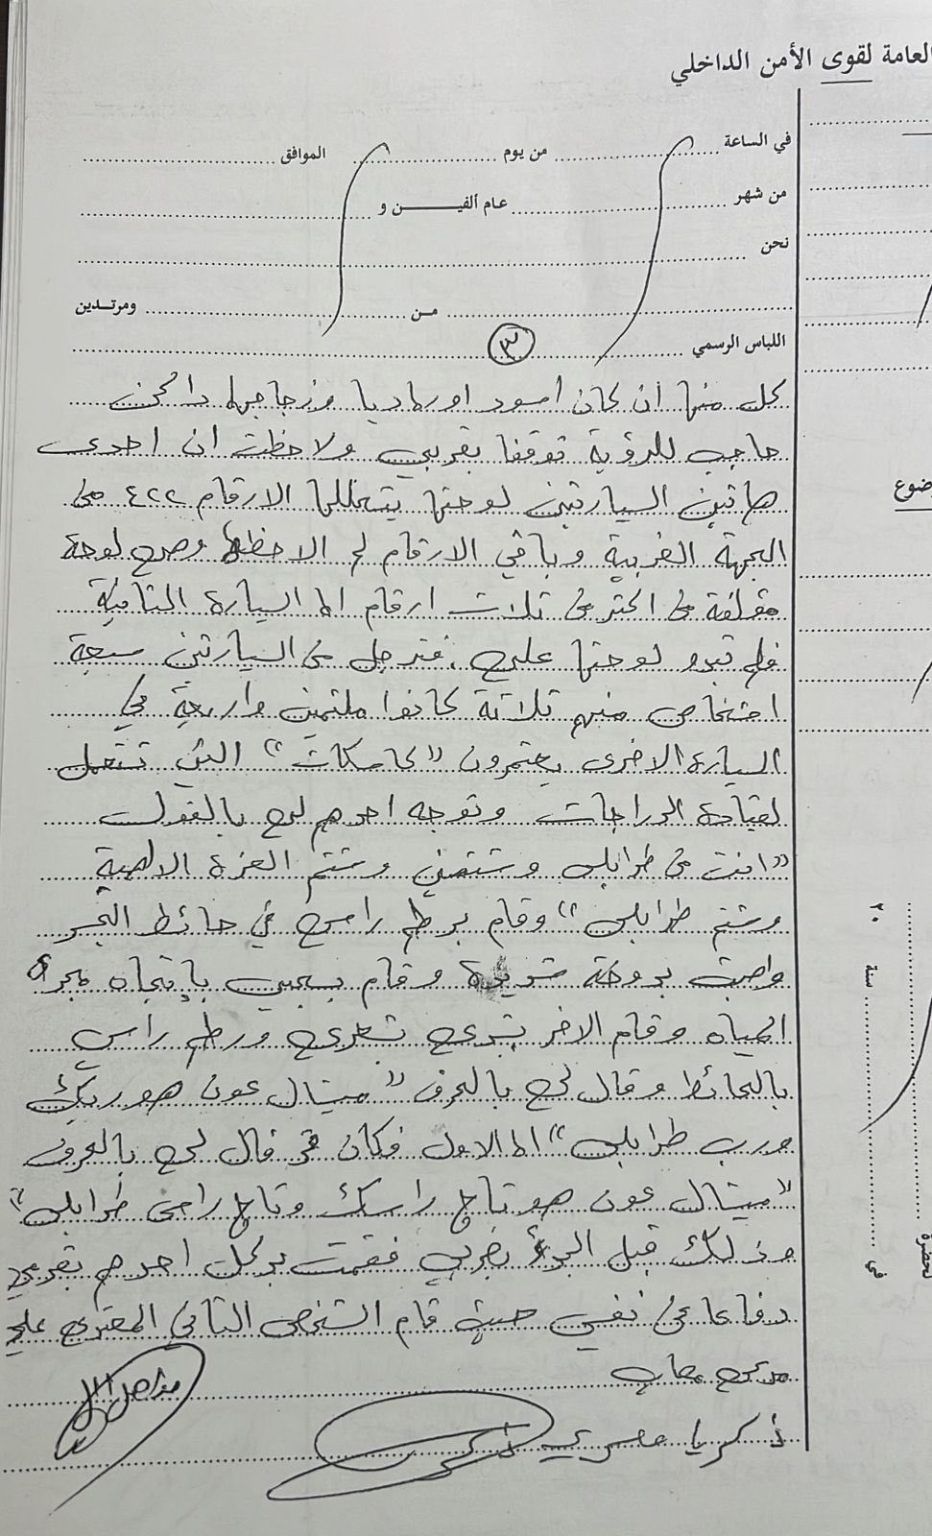 العامة لقوى الأمن الداخلي
في الساعة من يوم الموافق
من شهر عام ألفيــــن و
نحن
مـن ومرتـدين
اللباس الرسمي
٣
كل منها ان كان اسود او رماديا وزجاجها داكن
حاجب للرؤية توقفا بقربي ولاحظت ان احدى
هاتين السيارتين لوحتها يتخللها الارقام ٤٢٢ من
الجهة الغربية وباقي الارقام لم الاحظها وهي لوحة
مؤلفة من اكثر من ثلاث ارقام اما السيارة الثانية
فلم تبدو لوحتها علي. فترجل من السيارتين سبعة
اشخاص منهم ثلاثة كانوا ملثمين واربعة في
السيارة الاخرى يعتمرون "كاسكات" التي تستعمل
لقيادة الدراجات وتوجه احدهم لي بالقول
"انت من طرابلس وشتمني وشتم العزة الالهية
وشتم طرابلس" وقام برطم راسي في حائط الجسر
واصبت بدوخة شديدة وقام بسحبي باتجاه مجرى
المياه وقام الاخر بنزع شعري ورطم راسي
بالحائط وقال لي بالحرف "ميشال عون هو ربك
ورب طرابلس" اما الاول فكان قد قال لي بالحرف
"ميشال عون هو تاج راسك وتاج راس طرابلس"
وذلك قبل البدء بضربي فقمت بركل احدهم بقدمي
دفاعا عن نفسي حيث قام الشخص الثاني المعتدي علي
زكريا مصري